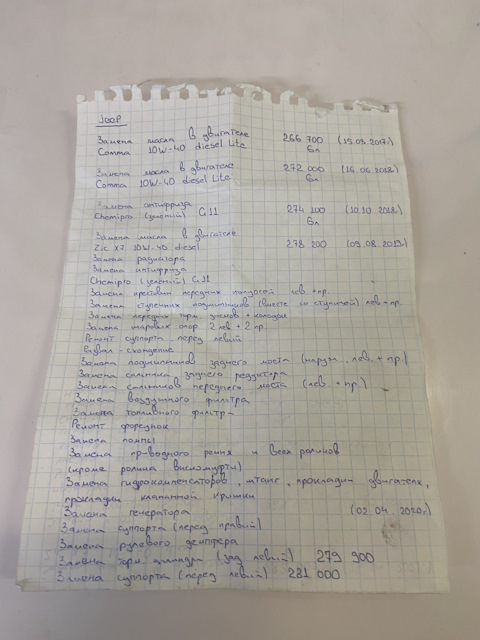 JEEP
Замена масла в двигателе 266 700 (15.03.2017г)
Comma 10W-40 diesel Lite 6л
Замена масла в двигателе 272 000 (16.06.2018)
Comma 10W-40 diesel Lite 6л
Замена антифриза 274 100 (10.10.2018)
Chemipro (зелёный) G11 6л
Замена масла в двигателе
Zic X7 10W-40 diesel 278 200 (09.08.2019)
Замена радиатора
Замена антифриза
Chemipro (зелёный) G11
Замена крестовин передних полуосей лев + пр.
Замена ступичных подшипников (вместе со ступицей) лев + пр.
Замена передних торм. дисков + колодок
Замена шаровых опор 2 лев + 2 пр.
Ремонт суппорта перед левый
Развал - схождение
Замена подшипников заднего моста (наруж. лев. + пр.)
Замена сальника заднего редуктора
Замена сальников переднего моста (лев. + пр.)
Замена воздушного фильтра
Замена топливного фильтра
Ремонт форсунок
Замена помпы
Замена приводного ремня и всех роликов
(кроме ролика вискомуфты)
Замена гидрокомпенсаторов, штанг, прокладки двигателя,
прокладки клапанной крышки
Замена генератора (02.04.2020г)
Замена суппорта (перед правый)
Замена рулевого демпфера
Замена торм. цилиндра (зад левый) 279 900
Замена суппорта (перед левый) 281 000